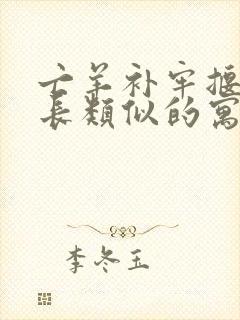 亡羊补牢揠
长类似的寓
李冬玉